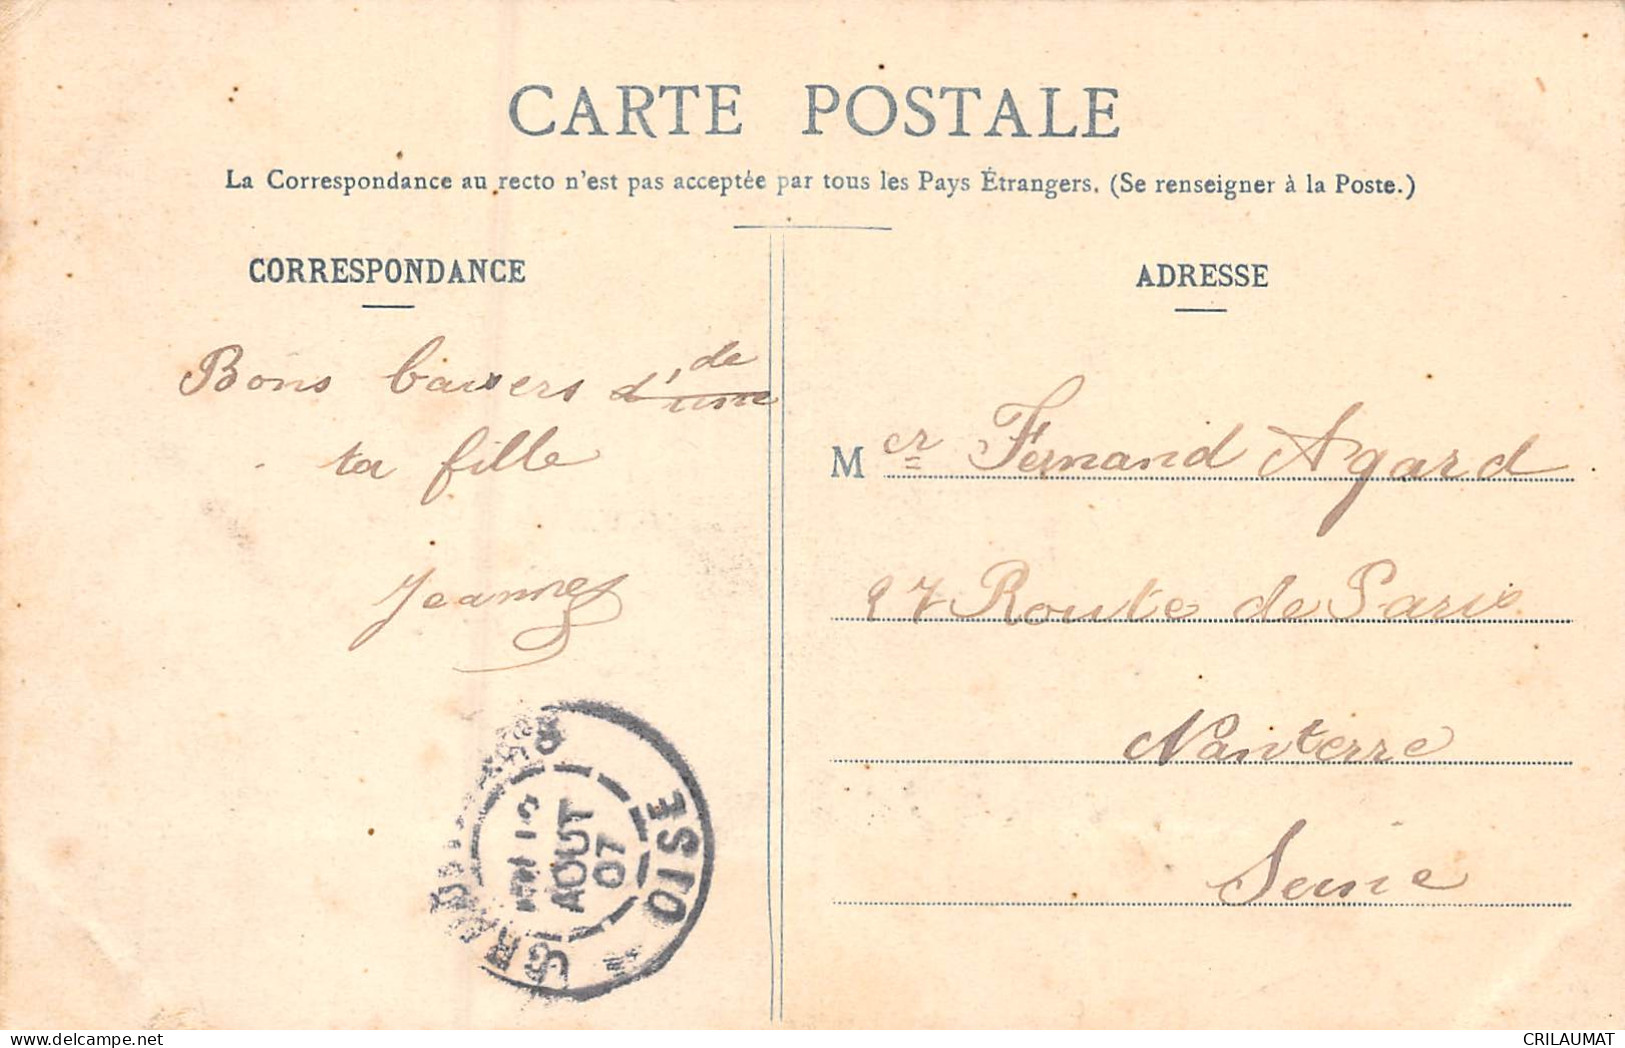 CARTE POSTALE
La Correspondance au recto n'est pas acceptée par tous les Pays Étrangers. (Se renseigner à la Poste.)
CORRESPONDANCE
Bons baisers d'une de
ta fille
Jeanne
ADRESSE
Mer Fernand Agard
97 Route de Paris
Nanterre
Seine
OISE
AOUT
07
CRILAUMAT